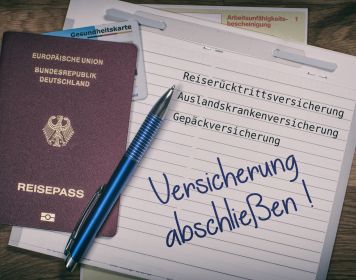 Gesundheitskarte
Arbeitsunfähigkeits-
bescheinigung 1
EUROPÄISCHE UNION
BUNDESREPUBLIK
DEUTSCHLAND
REISEPASS
Reiserücktrittsversicherung
Auslandskrankenversicherung
Gepäckversicherung
Versicherung
abschließen !